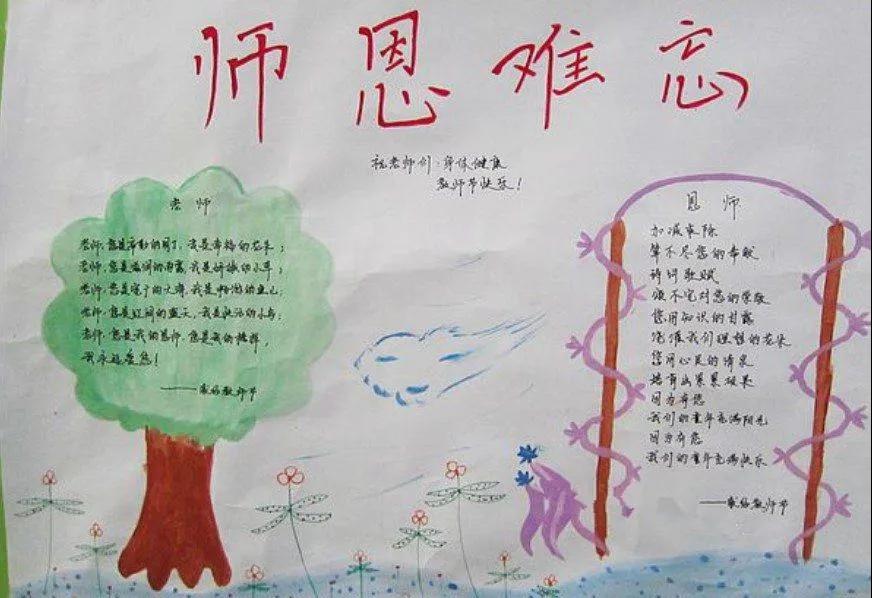 师恩难忘
祝老师们:身体健康
教师节快乐!
老师
老师,您是辛勤的园丁,我是希望的花朵;
老师,您是滋润的雨露,我是娇嫩的小草;
老师,您是宽广的大海,我是畅游的鱼儿;
老师,您是辽阔的蓝天,我是快活的小鸟;
老师,您是我的恩师,您是我的榜样,
我永远爱您!
教师节
恩师
加减乘除
算不尽您的奉献
诗词歌赋
颂不完对您的崇敬
您用知识的甘露
浇灌我们理想的花朵
您用心灵的清泉
培育出累累硕果
因为有您
我们的童年充满阳光
因为有您
我们的童年充满快乐
教师节